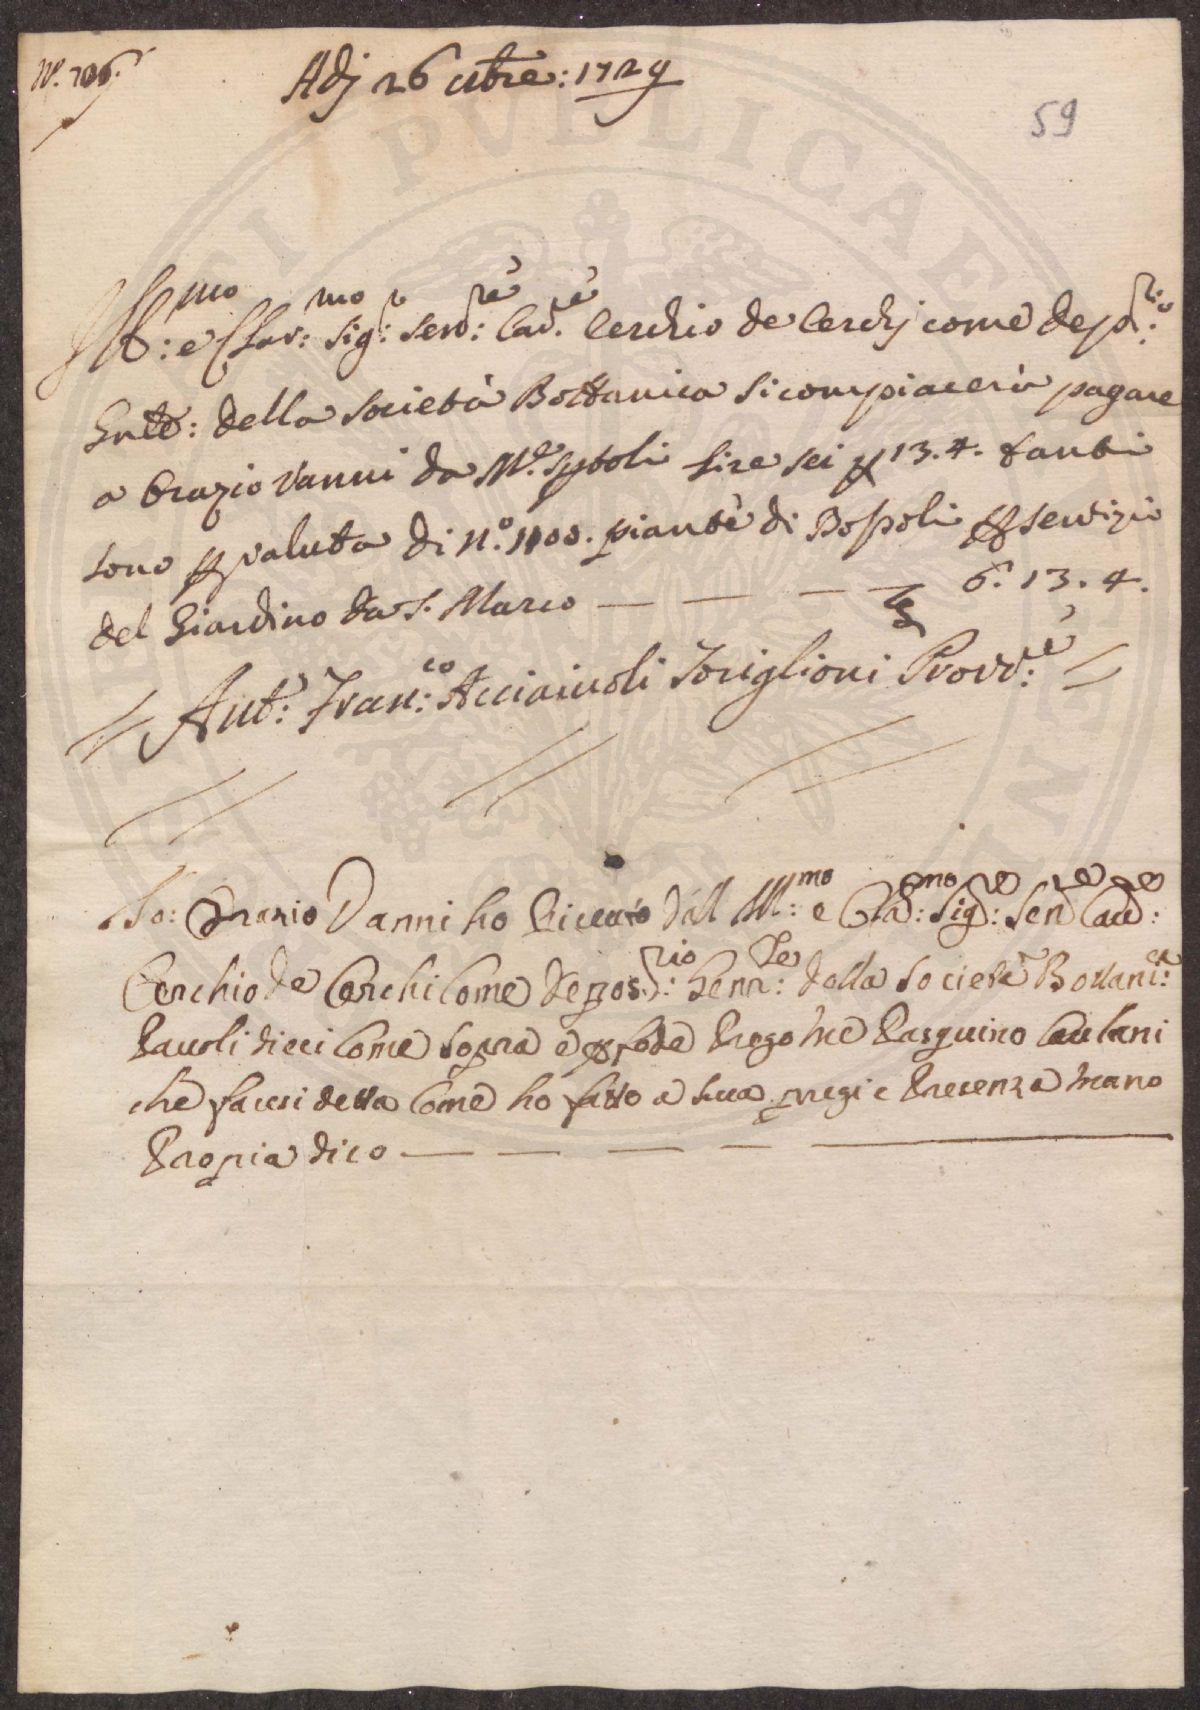 N.° 106.
Adj 26 8bre: 1729
59
Ill:mo e Clar:mo Sig:r Sen:re Cav:re Cerchio de Cerchj come depos:rio
Gnle: della Società Bottanica si compiacerà pagare
a Orazio Vanni da M.e lire sei p 13. 4. tanti
sono p valuta di N.° 1100. piante di Bossoli p servizio
del Giardino da S. Marco — — — — £ 6. 13. 4.
Ant: Fran:co Acciaiuoli Toriglioni Provv:re
Io: Orazio Vanni ho Riceuto dall Ill:mo e Cla:mo Sig:re Sen:re Cau:re
Cerchio de Cerchi Come Depos:rio Genn:le della Società Bottani:ca
Pauoli dieci Come Sopra e p fede Prego Me Pasquino
che facesi detta Come ho fatto a sua pregi e Presenza Mano
Propria dico — — — —